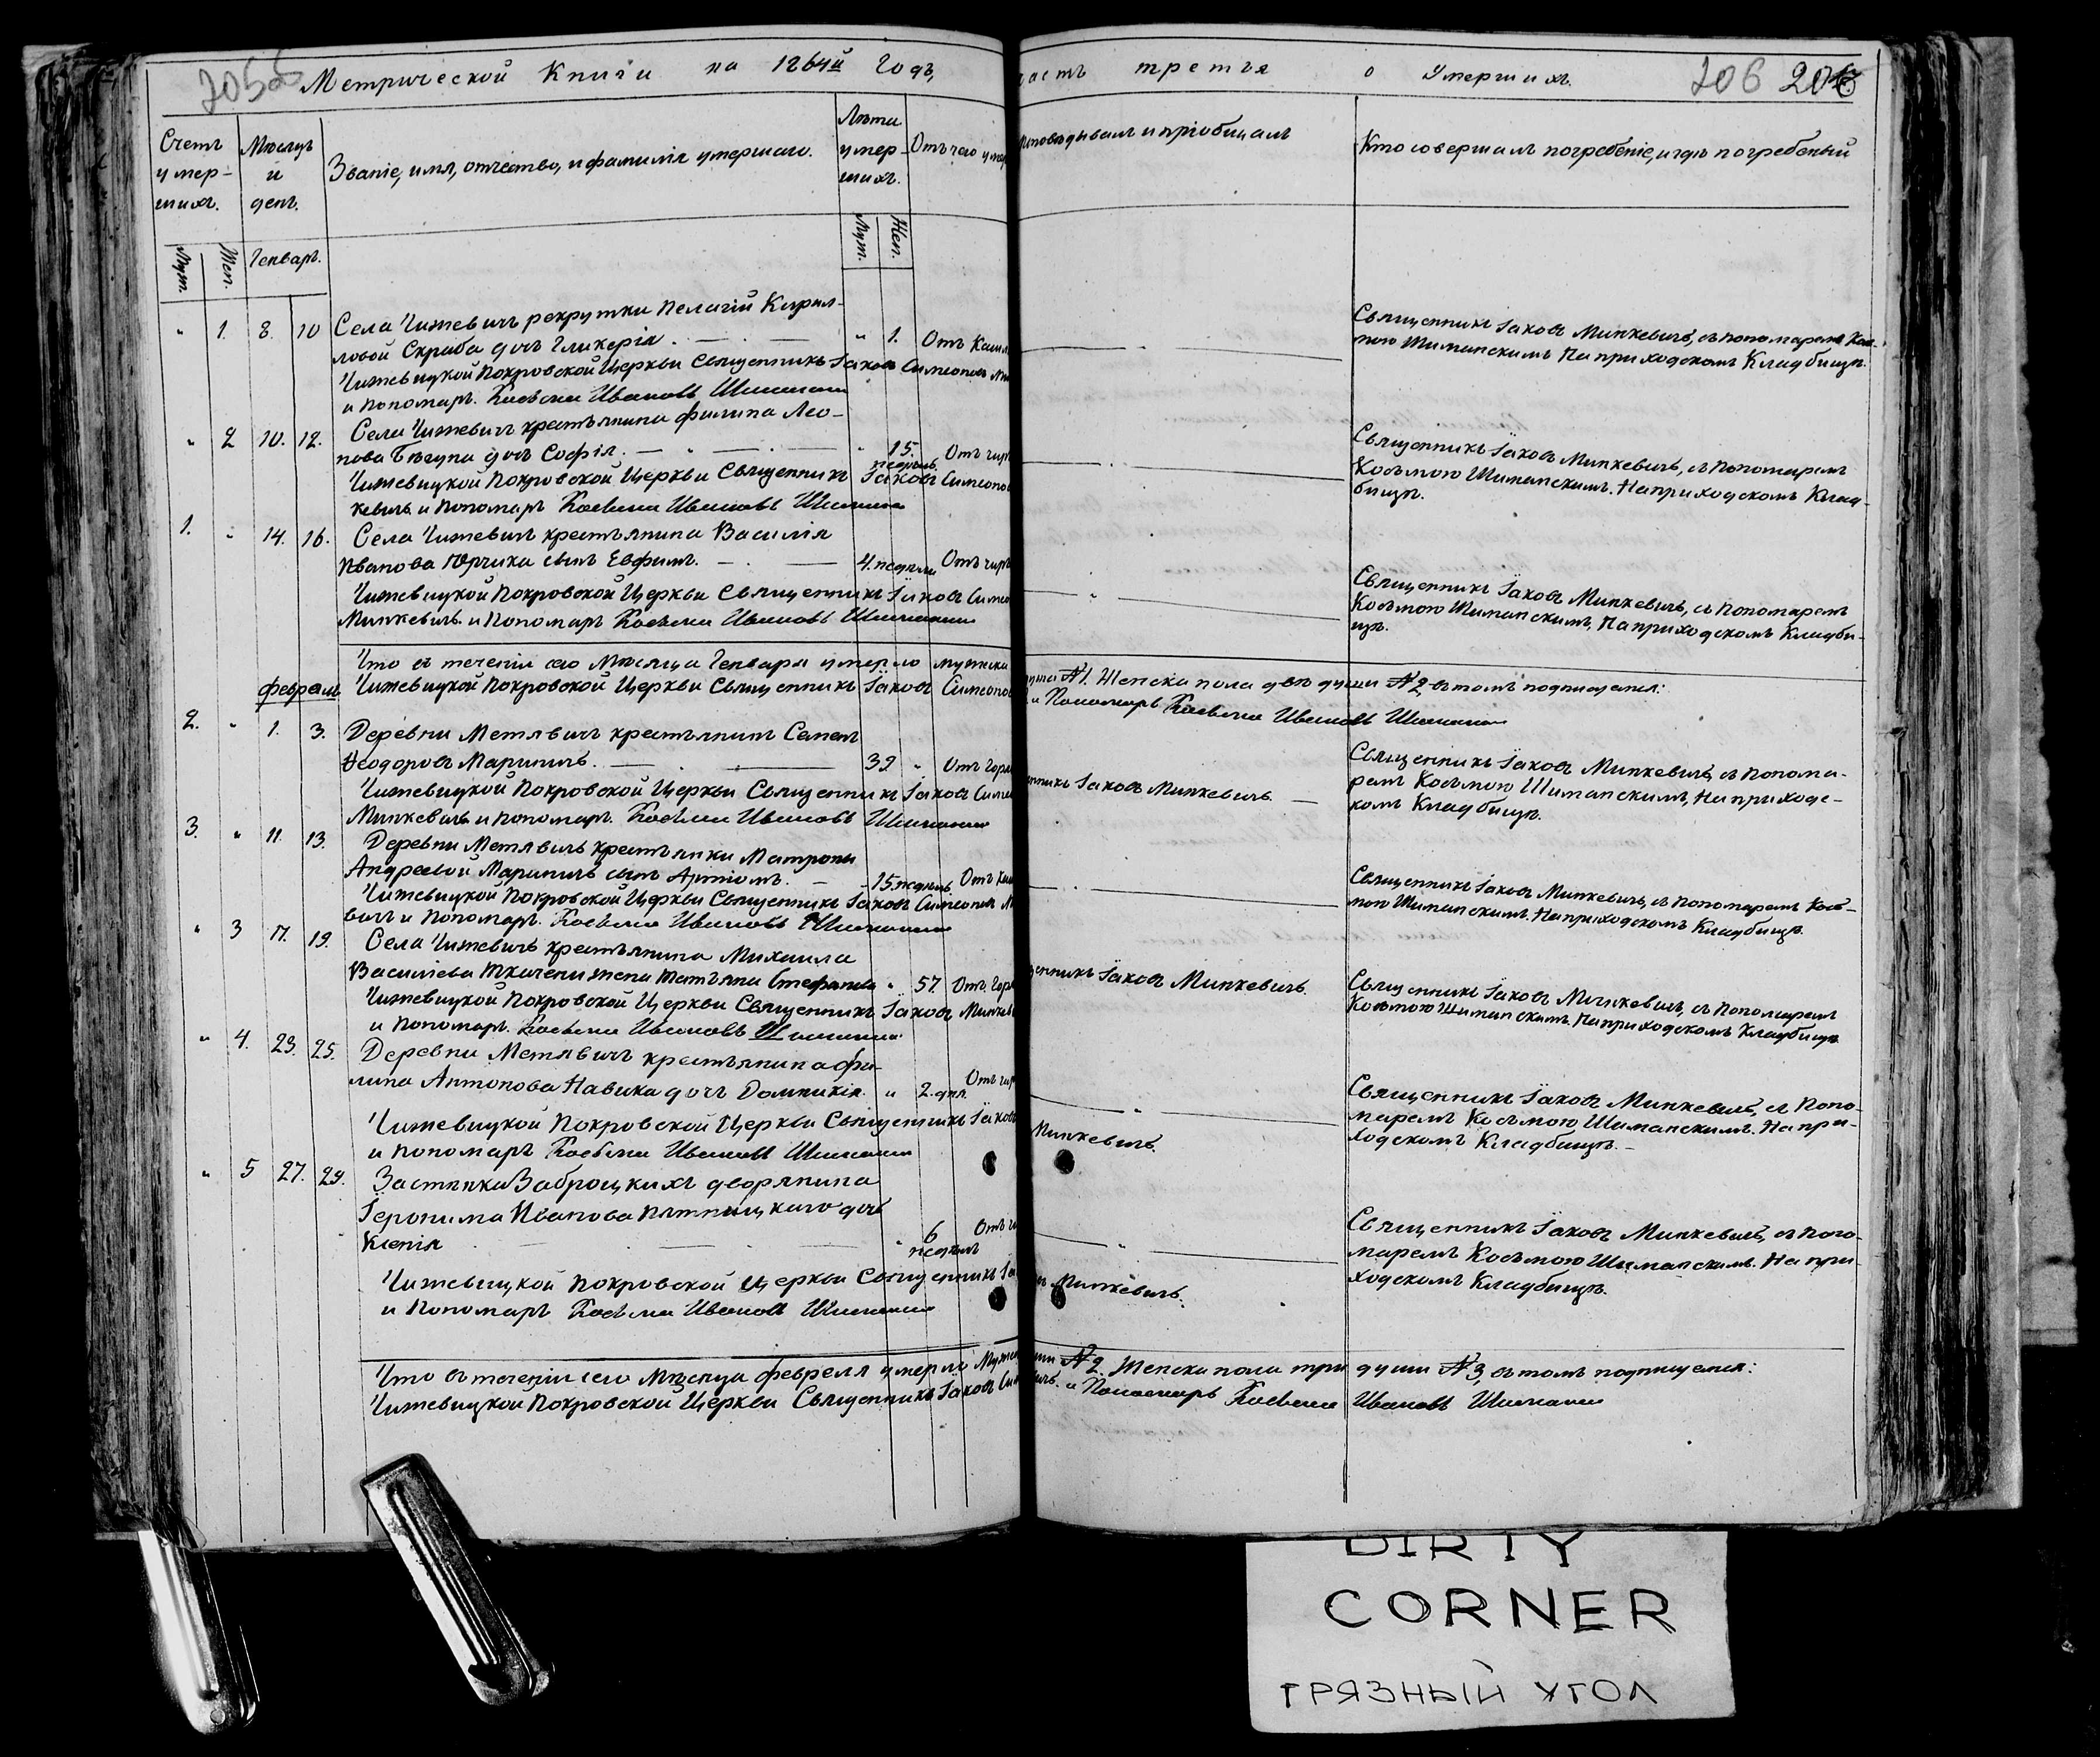 205об
Метрической Книги на 1864й Годъ,
часть третья о Умершихъ.
206 206
Счетъ умер-шихъ.
Мѣсяцъ и день.
Званіе, имя, отчество, и фамилія умершаго.
Лѣта умер-шихъ.
Отъ чего умер
исповѣдывалъ и пріобщалъ
Кто совершалъ погребеніе, и гдѣ погребены
Муж.
Жен.
Генварь.
Муж.
Жен.
" 1. 8. 10 Села Чижевичъ рекрутки Пелагіи Кирил-
ловой Скриба дочь Гликерія. " 1. Отъ Кашл
Священникъ Іаковъ Минкевичъ, съ пономаремъ Кось-
мою Шиманскимъ На приходскомъ Кладбищѣ.
Чижевицкой Покровской Церкви Священникъ Іаковъ Симеоновъ Ми
и пономарь. Косьма Ивановъ Шимански
" 2 10. 12. Села Чижевичъ крестьянина Филипа Лео-
нова Бѣгуна дочь Софія. " 15. недѣль. Отъ чир
Священникъ Іаковъ Минкевичъ, съ Пономаремъ
Косьмою Шиманскимъ. На приходскомъ Клад-
бищѣ.
Чижевицкой Покровской Церкви Священникъ Іаковъ Симеонов
кевичъ и Пономарь Косьма Ивановъ Шимански
1. " 14. 16. Села Чижевичъ крестьянина Василія
Иванова Юрчика сынъ Евфимъ. 4. недѣли Отъ чирь
Священникъ Іаковъ Минкевичъ, съ Пономаремъ
Косьмою Шиманскимъ, На приходскомъ Кладби-
щѣ.
Чижевицкой Покровской Церкви Священникъ Іаковъ Симео
Минкевичъ и Пономарь Косьма Ивановъ Шимански
Что въ теченіи сего Мѣсяца Генваря умерло мужска
душа №1. Женска пола двѣ души №2, въ томъ подписуемся:
Чижевицкой Покровской Церкви Священникъ Іаковъ Симеонов
и Пономарь Косьма Ивановъ Шимански
Февраль
2. " 1. 3. Деревни Метявичъ крестьянинъ Семенъ
Ѳеодоровъ Мариничъ. 39 " Отъ Горя
енникъ Іаковъ Минкевичъ.
Священникъ Іаковъ Минкевичъ, съ Понома-
ремъ Косьмою Шиманскимъ, На приходс-
комъ Кладбищѣ.
Чижевицкой Покровской Церкви Священникъ Іаковъ Симе
Минкевичъ и Пономарь. Косьма Ивановъ Шимански
3. " 11. 13. Деревни Метявичъ крестьянки Матроны
Андреевой Мариничъ сынъ Артіомъ. 15. недѣль. Отъ Каш
Священникъ Іаковъ Минкевичъ, съ Пономаремъ Кось-
мою Шиманскимъ. На приходскомъ Кладбищѣ.
Чижевицкой Покровской Церкви Священникъ Іаковъ Симеонов М
вичъ и Пономарь. Косьма Ивановъ Шимански
" 3 17. 19. Села Чижевичъ крестьянина Михаила
Василіева Ткачени жена Татьяна Стефанова " 57. Отъ Горя
щенникъ Іаковъ Минкевичъ.
Священникъ Іаковъ Минкевичъ, съ Пономаремъ
Косьмою Шиманскимъ, На приходскомъ Кладбищѣ
Чижевицкой Покровской Церкви Священникъ Іаковъ Минкев
и Пономарь. Косьма Ивановъ Шимански
" 4. 23. 25. Деревни Метявичъ крестьянина Фи-
липа Антонова Навика дочь Домникія. " 2. дня. Отъ чир
Священникъ Іаковъ Минкевичъ, съ Поно-
маремъ Косьмою Шиманскимъ. На при-
ходскомъ Кладбищѣ.
Чижевицкой Покровской Церкви Священникъ Іаковъ
Минкевичъ.
и Пономарь Косьма Ивановъ Шимански
" 5 27. 29. Застѣнка Заброцкихъ дворянина
Іеронима Иванова Пятницкаго дочь
Ксенія " 6 недѣль Отъ чи
Священникъ Іаковъ Минкевичъ, съ Поно-
маремъ Косьмою Шиманскимъ. На при-
ходскомъ Кладбищѣ.
Чижевицкой Покровской Церкви Священникъ Іа
въ Минкевичъ.
и Пономарь Косьма Ивановъ Шимански
Что въ теченіи сего Мѣсяца Февраля умерло Мужс
уши №2. Женска пола три души №3, въ томъ подпищемся:
Чижевицкой Покровской Церкви Священникъ Іаковъ Сим
ичъ. и Пономарь Косьма Ивановъ Шимански
DIRTY
CORNER
ГРЯЗНЫЙ УГОЛ